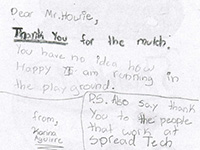 Dear Mr. Howie,
Thank You for the mulch!
You have no idea how
Happy I am running in
the playground.
from,
Karina
Aguirre
P.S. Also say thank
You to the people
that work at
Spread Tech